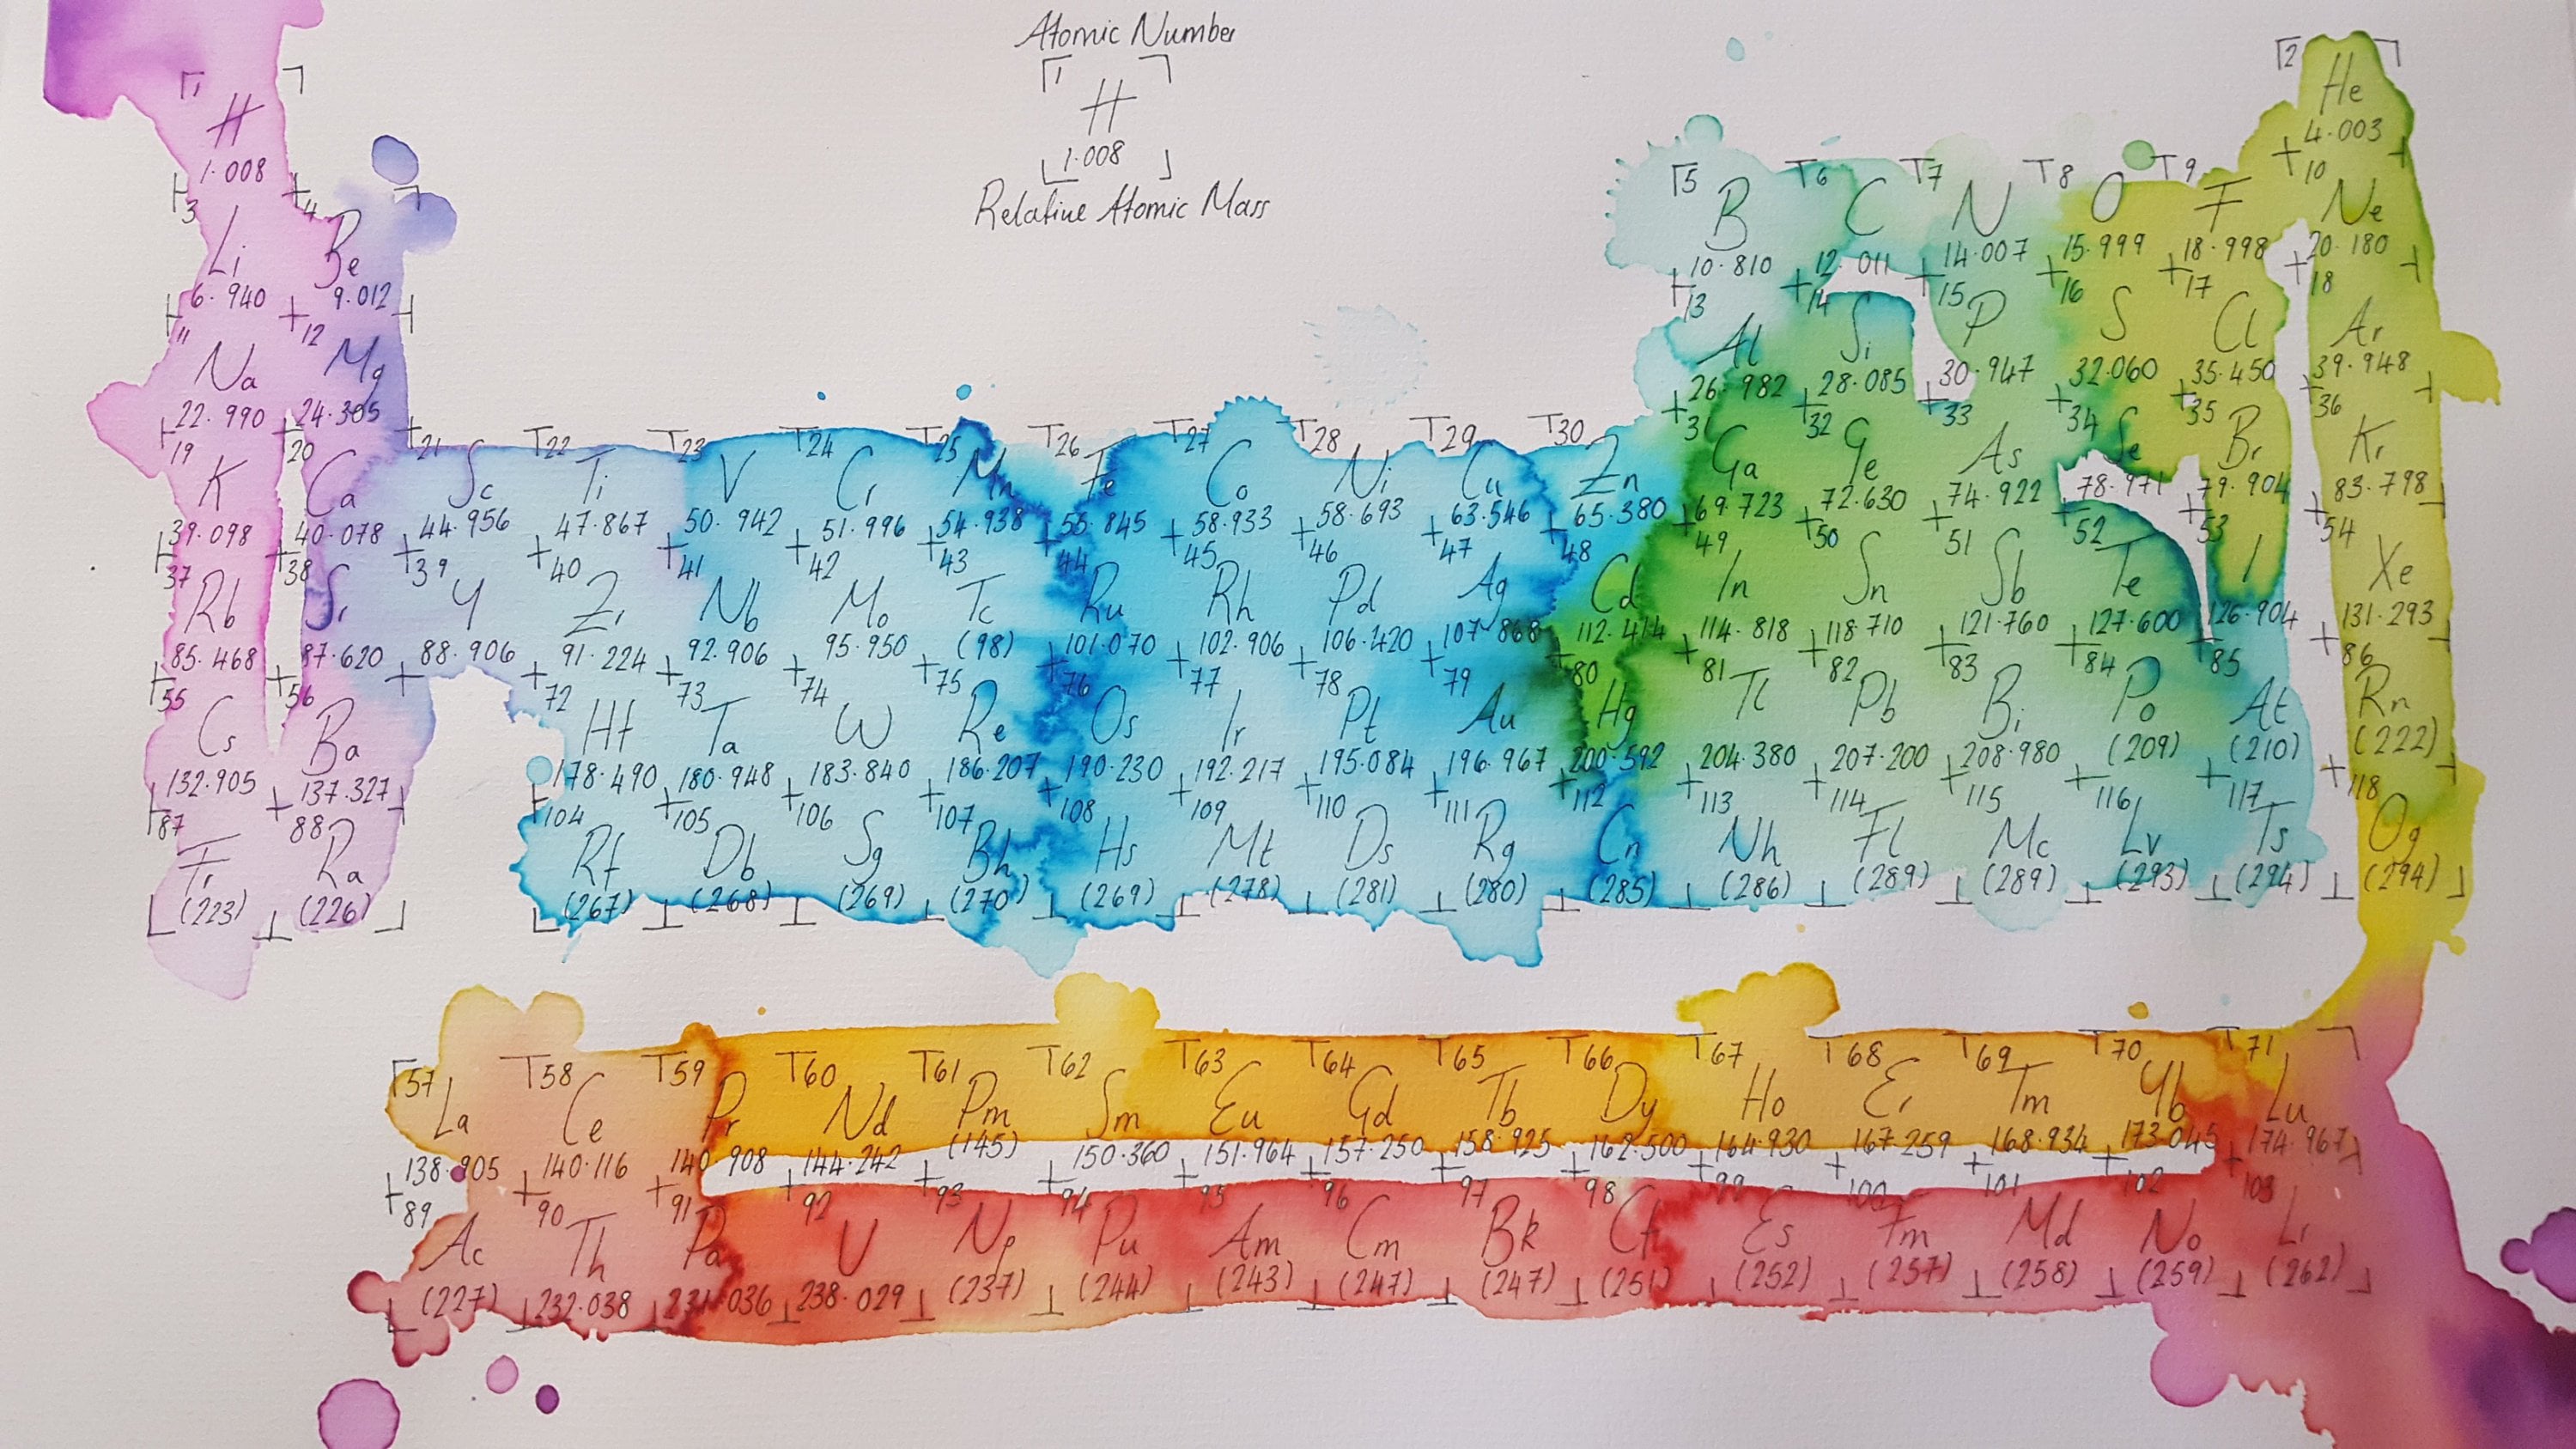 Atomic Number
1
H
1.008
Relative Atomic Mass
1 2
H He
1.008 4.003
3 4 5 6 7 8 9 10
Li Be B C N O F Ne
6.940 9.012 10.810 12.011 14.007 15.999 18.998 20.180
11 12 13 14 15 16 17 18
Na Mg Al Si P S Cl Ar
22.990 24.305 26.982 28.085 30.947 32.060 35.450 39.948
19 20 21 22 23 24 25 26 27 28 29 30 31 32 33 34 35 36
K Ca Sc Ti V Cr Mn Fe Co Ni Cu Zn Ga Ge As Se Br Kr
39.098 40.078 44.956 47.867 50.942 51.996 54.938 55.845 58.933 58.693 63.546 65.380 69.723 72.630 74.922 78.971 79.904 83.798
37 38 39 40 41 42 43 44 45 46 47 48 49 50 51 52 53 54
Rb Sr Y Zr Nb Mo Tc Ru Rh Pd Ag Cd In Sn Sb Te I Xe
85.468 87.620 88.906 91.224 92.906 95.950 (98) 101.070 102.906 106.420 107.868 112.414 114.818 118.710 121.760 127.600 126.904 131.293
55 56 72 73 74 75 76 77 78 79 80 81 82 83 84 85 86
Cs Ba Hf Ta W Re Os Ir Pt Au Hg Tl Pb Bi Po At Rn
132.905 137.327 178.490 180.948 183.840 186.207 190.230 192.217 195.084 196.967 200.592 204.380 207.200 208.980 (209) (210) (222)
87 88 104 105 106 107 108 109 110 111 112 113 114 115 116 117 118
Fr Ra Rf Db Sg Bh Hs Mt Ds Rg Cn Nh Fl Mc Lv Ts Og
(223) (226) (267) (268) (269) (270) (269) (278) (281) (280) (285) (286) (289) (289) (293) (294) (294)
57 58 59 60 61 62 63 64 65 66 67 68 69 70 71
La Ce Pr Nd Pm Sm Eu Gd Tb Dy Ho Er Tm Yb Lu
138.905 140.116 140.908 144.242 (145) 150.360 151.964 157.250 158.925 162.500 164.930 167.259 168.934 173.045 174.967
89 90 91 92 93 94 95 96 97 98 99 100 101 102 103
Ac Th Pa U Np Pu Am Cm Bk Cf Es Fm Md No Lr
(227) 232.038 231.036 238.029 (237) (244) (243) (247) (247) (251) (252) (257) (258) (259) (262)